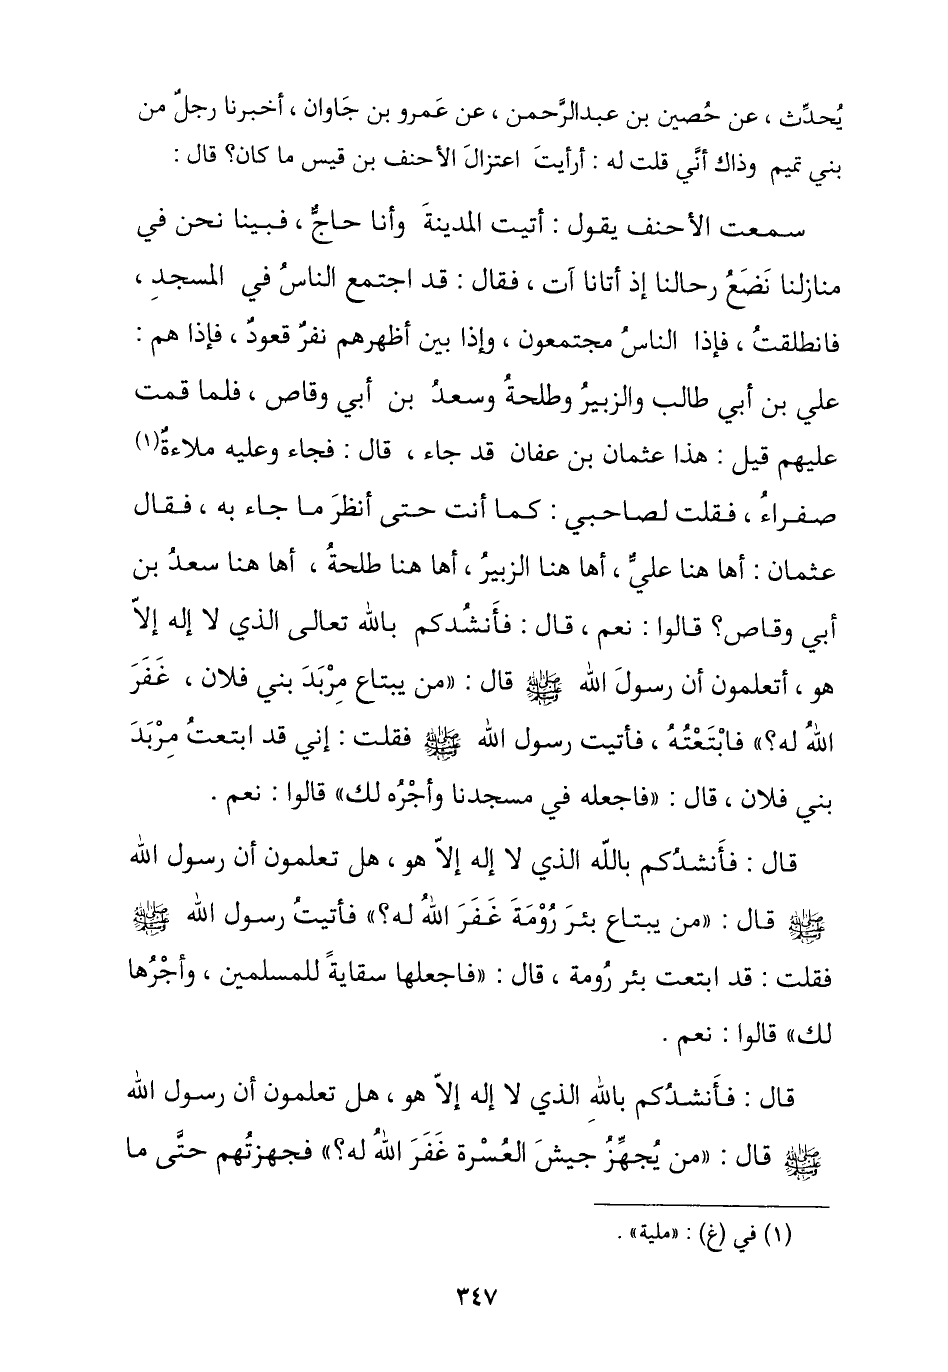 يُحدِّث ، عن حُصين بن عبدالرَّحمن ، عن عَمرو بن جَاوان ، أخبرنا رجلٌ من
بني تميم وذاك أنَّي قلت له : أرأيتَ اعتزالَ الأحنف بن قيس ما كان؟ قال :
سمعت الأحنف يقول : أتيت المدينةَ وأنا حاجٌّ ، فبينا نحن في
منازلنا نَضَعُ رحالنا إذ أتانا آت ، فقال : قد اجتمع الناسُ في المسجدِ ،
فانطلقتُ ، فإذا الناسُ مجتمعون ، وإذا بين أظهرهم نفرٌ قعودٌ ، فإذا هم :
علي بن أبي طالب والزبيرُ وطلحةُ وسعدُ بن أبي وقاص ، فلما قمت
عليهم قيل : هذا عثمان بن عفان قد جاء ، قال : فجاء وعليه ملاءةٌ(١)
صفراءُ ، فقلت لصاحبي : كما أنت حتى أنظرَ ما جاء به ، فقال
عثمان : أها هنا عليٌّ ، أها هنا الزبيرُ ، أها هنا طلحةُ ، أها هنا سعدُ بن
أبي وقاص؟ قالوا : نعم ، قال : فأَنشُدكم بالله تعالى الذي لا إله إلاّ
هو ، أتعلمون أن رسولَ الله ﷺ قال : «من يبتاع مِرْبَدَ بني فلان ، غَفَرَ
اللهُ له؟» فابْتَعْتُهُ ، فأتيت رسول الله ﷺ فقلت : إني قد ابتعتُ مِرْبَدَ
بني فلان ، قال : «فاجعله في مسجدنا وأجْرُه لك» قالوا : نعم .
قال : فأَنشدُكم باللّه الذي لا إله إلاّ هو ، هل تعلمون أن رسول الله
ﷺ قال : «من يبتاع بئرَ رُوْمَةَ غَفَرَ اللهُ له؟» فأتيتُ رسول الله ﷺ
فقلت : قد ابتعت بئر رُومة ، قال : «فاجعلها سقايةً للمسلمين ، وأجْرُها
لك» قالوا : نعم .
قال : فأَنشدُكم باللهِ الذي لا إله إلاّ هو ، هل تعلمون أن رسول الله
ﷺ قال : «من يُجهِّزُ جيشَ العُسْرة غَفَرَ اللهُ له؟» فجهزتُهم حتَّى ما
(١) في (غ) : «ملية» .
٣٤٧